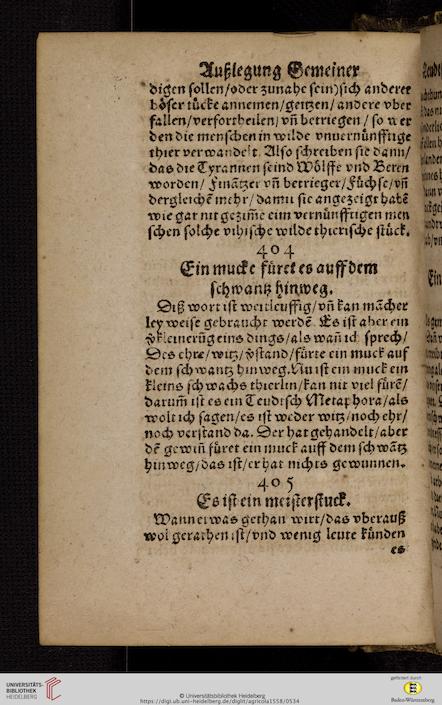 Außlegung Gemeiner
digen sollen/oder zunahe sein)sich anderer
böser tücke annemen/geitzen/andere vber
fallen/verfortheilen/vñ betriegen/so wer
den die menschen in wilde vnuernünfftige
thier verwandelt. Also schreiben sie dann/
das die Tyrannen seind Wölffe vnd Beren
worden/Finātzer vñ betrieger/Füchse/vñ
dergleichē mehr/damit sie angezeigt habē
wie gar nit gezīme eim vernünfftigen men
schen solche vihische wilde thierische stück.
404
Ein mucke füret es auff dem
schwantz hinweg.
Diß wort ist weitleuffig/vñ kan mācher
ley weise gebraucht werdē. Es ist aber ein
v̄kleinerūg eins dings/als wañ ich sprech/
Des ehre/witz/v̄stand/fürte ein muck auf
dem schwantz hinweg. Nu ist ein muck ein
kleins schwachs thierlin/kan nit viel fürē/
darum̄ ist es ein Teudtsch Metaphora/als
wolt ich sagen/es ist weder witz/noch ehr/
noch verstand da. Der hat gehandelt/aber
dē gewiñ füret ein muck auff dem schwātz
hinweg/das ist/er hat nichts gewunnen.
405
Es ist ein meisterstuck.
Wann etwas gethan wirt/das vberauß
wol gerathen ist/vnd wenig leute künden
es
UNIVERSITÄTS-
BIBLIOTHEK
HEIDELBERG
© Universitätsbibliothek Heidelberg
https://digi.ub.uni-heidelberg.de/diglit/agricola1558/0534
gefördert durch
Baden-Württemberg